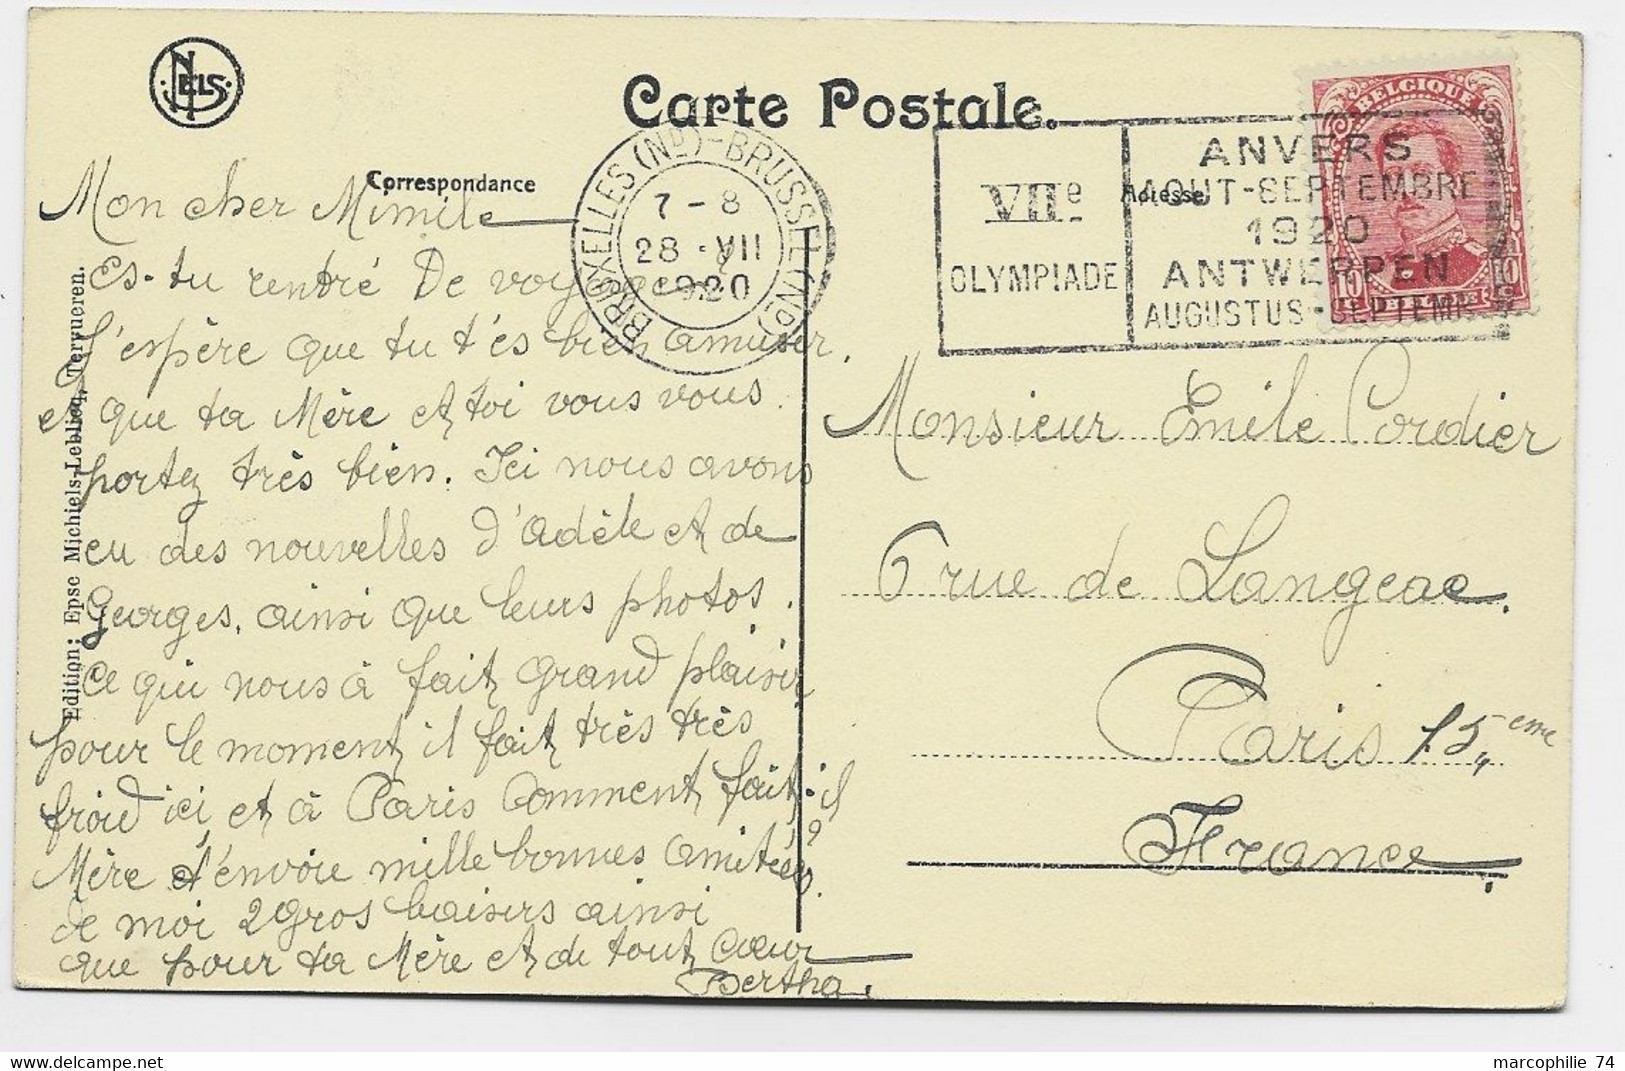 NELS
Carte Postale.
Correspondance
Adresse
BRUXELLES (Nd) - BRUSSEL (Nd)
7 - 8
28 · VII
1920
VIIe
OLYMPIADE
ANVERS
AOUT-SEPTEMBRE
1920
ANTWERPEN
AUGUSTUS-SEPTEMB
BELGIQUE
10 10
BELGIE
Edition: Epse Michiels-Leblicq, Tervueren.
Mon cher Mimile
Es-tu rentré De voyage
J'espère que tu t'és bien amuser.
et que ta Mère et toi vous vous
portez très bien. Ici nous avons
eu des nouvelles d'Adèle et de
Georges, ainsi que leurs photos.
ce qui nous à fait grand plaisir
pour le moment il fait très très
froid ici et à Paris Comment fait-il ?
Mère t'envoie mille bonnes amitiés.
de moi 2 gros baisers ainsi
que pour ta Mère et de tout cœur
Bertha.
Monsieur Emile Cordier
6 rue de Langeac.
Paris 15eme
France
marcophilie 74